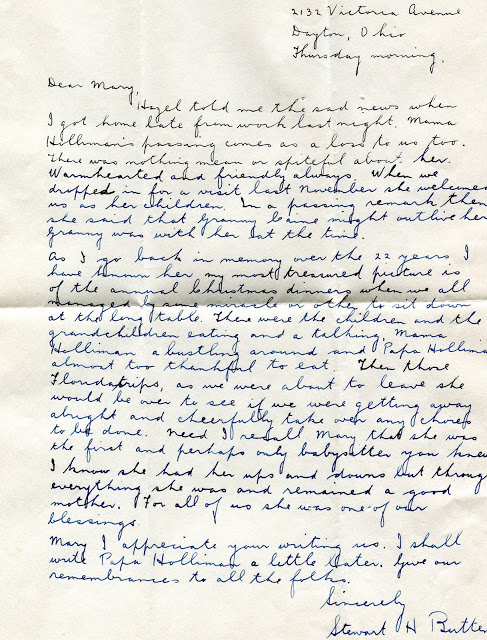 2132 Victoria Avenue
Dayton, Ohio
Thursday morning.
Dear Mary,
Hazel told me the sad news when
I got home late from work last night. Mama
Holliman's passing comes as a loss to us too.
There was nothing mean or spiteful about her.
Warmhearted and friendly always. When we
dropped in for a visit last November she welcomed
us as her children. In a passing remark then
she said that Granny Caine might outlive her
Granny was with her at the time.
As I go back in memory over the 22 years I
have known her my most treasured picture is
of the annual Christmas dinners when we all
managed by some miracle or other to sit down
at the long table. There were the children and the
grandchildren eating and a talking, Mama
Holliman a bustling around and Papa Holliman
almost too thankful to eat. Then those
Florida trips, as we were about to leave she
would be over to see if we were getting away
alright and cheerfully take over any chores
to be done. Need I recall Mary that she was
the first and perhaps only babysitter you knew
I know she had her ups and downs but through
everything she was and remained a good
mother. For all of us she was one of our
blessings.
Mary I appreciate your writing us. I shall
write Papa Holliman a little later. Give our
remembrances to all the folks.
Sincerely
Stewart H Butte